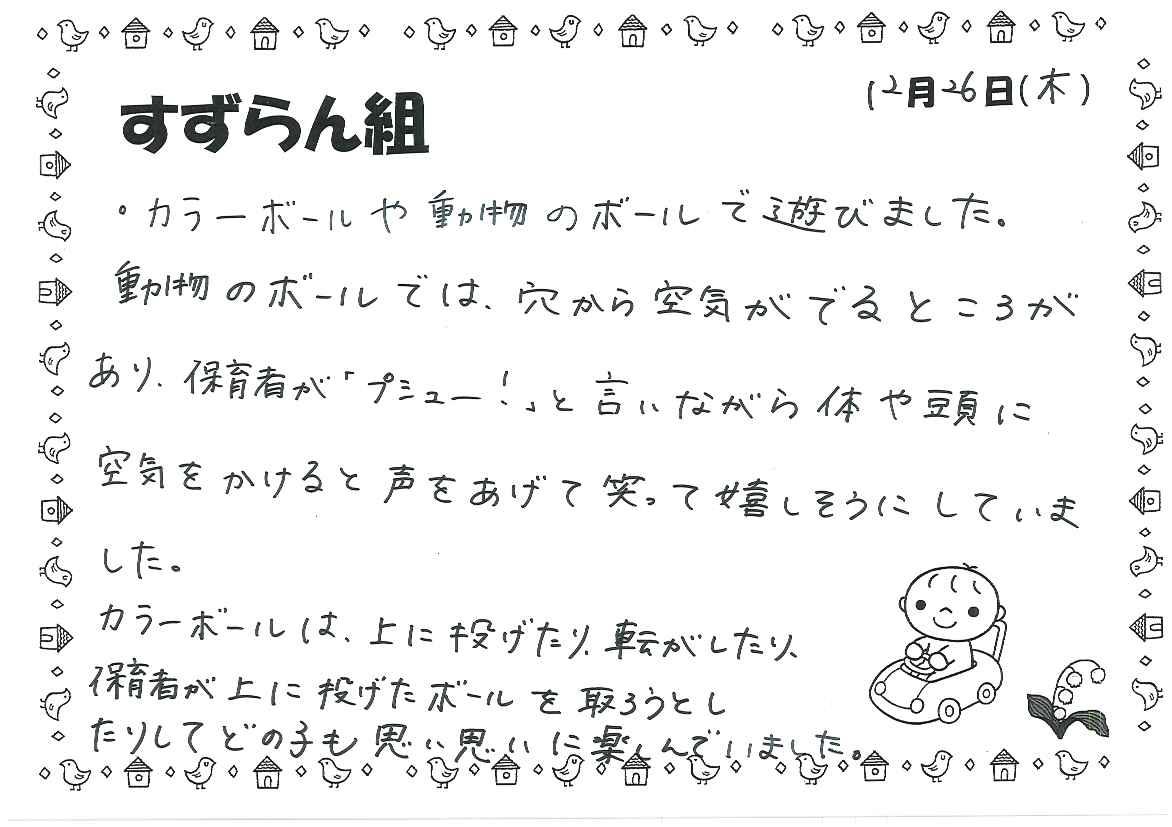 すずらん組
12月26日(木)
・カラーボールや動物のボールで遊びました。
動物のボールでは、穴から空気がでるところが
あり、保育者が「プシュー!」と言いながら体や頭に
空気をかけると声をあげて笑って嬉しそうにしていま
した。
カラーボールは、上に投げたり、転がしたり、
保育者が上に投げたボールを取ろうとし
たりしてどの子も思い思いに楽しんでいました。